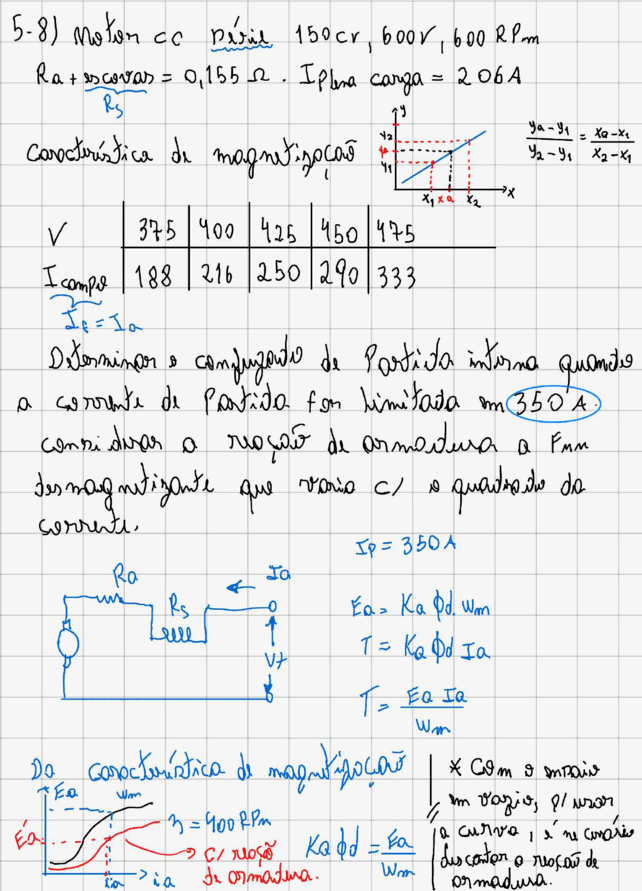 5-8) Motor cc Série 150cv, 600V, 600 RPm
Ra + escovas = 0,155 Ω. I plena carga = 206A
Rs
Característica de magnetização
y
y2
ya
y1
x1 xa x2
x
ya-y1 / y2-y1 = xa-x1 / x2-x1
V 375 400 425 450 475
Icampo 188 216 250 290 333
If = Ia
Determinar o conjugado de Partida interna quando
a corrente de Partida for limitada em 350A.
considerar a reação de armadura a Fmm
desmagnetizante que varia c/ o quadrado da
corrente.
Ra
Rs
Ia
Vt
Ip = 350A
Ea = Ka ɸd. Wm
T = Ka ɸd Ia
T = Ea Ia / Wm
Da característica de magnetização
Ea
Wm
E'a
n = 400RPm
c/ reação
de armadura.
ia
ia
Ka ɸd = Ea / Wm
* Com o ensaio
em vazio, p/ usar
a curva, é necessário
descontar a reação de
armadura.